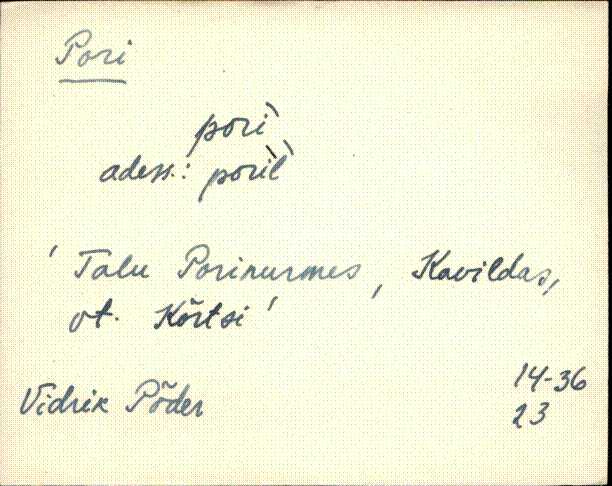 Pori
pori`
adess.: poril`
' Talu Porinurmes, Kavildas,
vt. Kõrtsi '
Vidrik Põder
14-36
23